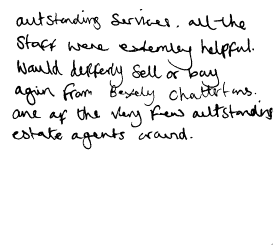 outstanding services. all the
staff were extemley helpful.
Would defferly sell or buy
agin from Bexely Chattertons.
one of the very few outstanding
estate agents around.